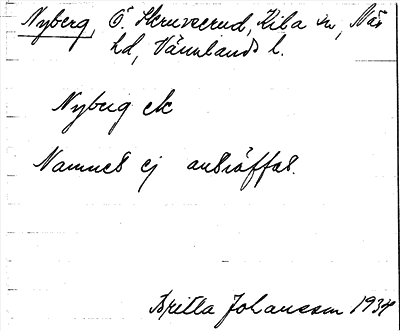 Nyberg, Ö. Skruverud, Kila sn, Näs
hd, Värmlands l.
Nyberg ek
Namnet ej anträffat.
Britta Johansson 1934